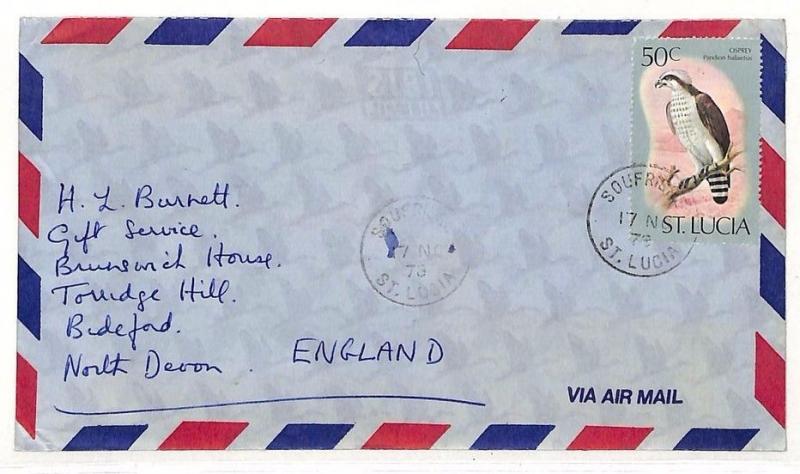 50c
OSPREY
Pandion haliaetus
ST. LUCIA
17 N
ST. LUCIA
17 NO
ST. LUCIA
H. L. Burnett.
Gift Service.
Brunswich House.
Torridge Hill.
Bideford.
North Devon.
ENGLAND
VIA AIR MAIL